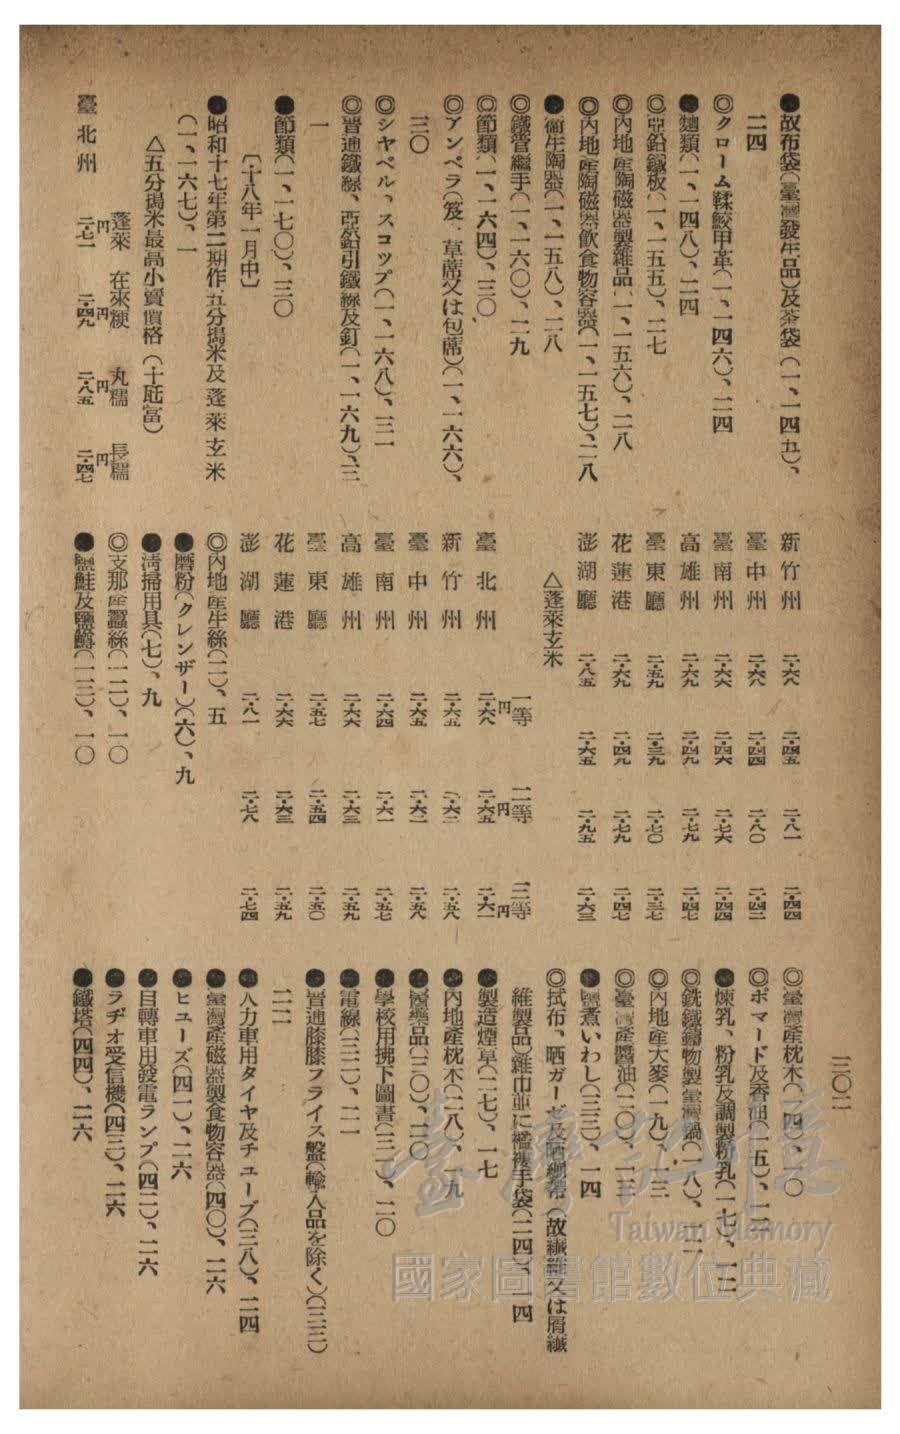 三〇二
●故布袋(臺灣發生品)及茶袋(一、一四九)、
二四
◎クローム鞣鮫甲革(一、一四六)、二四
●麵類(一、一四八)、二四
◎亞鉛鐵板(一、一五五)、二七
◎內地產陶磁器製雜品(一、一五六)、二八
◎內地產陶磁器飮食物容器(一、一五七)、二八
●衞生陶器(一、一五八)、二八
◎鐵管繼手(一、一六〇)、二九
◎節類(一、一六四)、三〇
◎アンペラ(笈、草蓆又は包蓆)(一、一六六)、
三〇
◎シヤベル、スコツプ(一、一六八)、三一
◎普通鐵線、亞鉛引鐵線及釘(一、一六九)、三
一
●節類(一、一七〇)、三〇
〔十八年一月中〕
●昭和十七年第二期作五分搗米及蓬萊玄米
(一、一六七)、一
△五分搗米最高小賣價格(十瓩當)
蓬萊 在來粳 丸糯 長糯
臺北州 二・七一円 二・四九円 二・八五円 二・四七円
新竹州 二・六八 二・四五 二・八一 二・四四
臺中州 二・六八 二・四四 二・八〇 二・四二
臺南州 二・六六 二・四六 二・七六 二・四四
高雄州 二・六九 二・四九 二・七九 二・四七
臺東廳 二・五九 二・三九 二・七〇 二・三七
花蓮港 二・六九 二・四九 二・七九 二・四七
澎湖廳 二・八五 二・六五 二・九五 二・六三
△蓬萊玄米
一等 二等 三等
臺北州 二・六八円 二・六五円 二・六一円
新竹州 二・六五 二・六二 二・五八
臺中州 二・六五 二・六二 二・五八
臺南州 二・六四 二・六一 二・五七
高雄州 二・六六 二・六三 二・五九
臺東廳 二・五七 二・五四 二・五〇
花蓮港 二・六六 二・六三 二・五九
澎湖廳 二・八一 二・七八 二・七四
◎內地產生絲(二)、五
●磨粉(クレンザー)(六)、九
●淸掃用具(七)、九
◎支那產蠶絲(一二)、一〇
●鹽鮭及鹽鱒(一三)、一〇
◎臺灣產枕木(一四)、一〇
◎ポマード及香油(一五)、一二
●煉乳、粉乳及調製粉乳(一七)、一二
◎銑鐵鑄物製臺灣鍋(一八)、一二
◎內地產大麥(一九)、一三
◎臺灣產醬油(二〇)、一三
●鹽煮いわし(二三)、一四
◎拭布、晒ガーゼ及晒繃帶(故纖維又は屑纖
維製品)雜巾並に襤褸手袋(二四)、一四
●製造煙草(二七)、一七
●內地產枕木(二八)、一九
●醫藥品(三〇)、二〇
●學校用拂下圖書(三一)、二〇
●電線(三二)、二一
●普通膝膝フライス盤(輸入品を除く)(三三)
二二
●人力車用タイヤ及チユーブ(三八)、二四
●臺灣產磁器製食物容器(四〇)、二六
●ヒユーズ(四一)、二六
●自轉車用發電ランプ(四二)、二六
●ラヂオ受信機(四三)、二六
●鐵塔(四四)、二六
臺灣記憶
Taiwan Memory
國家圖書館數位典藏